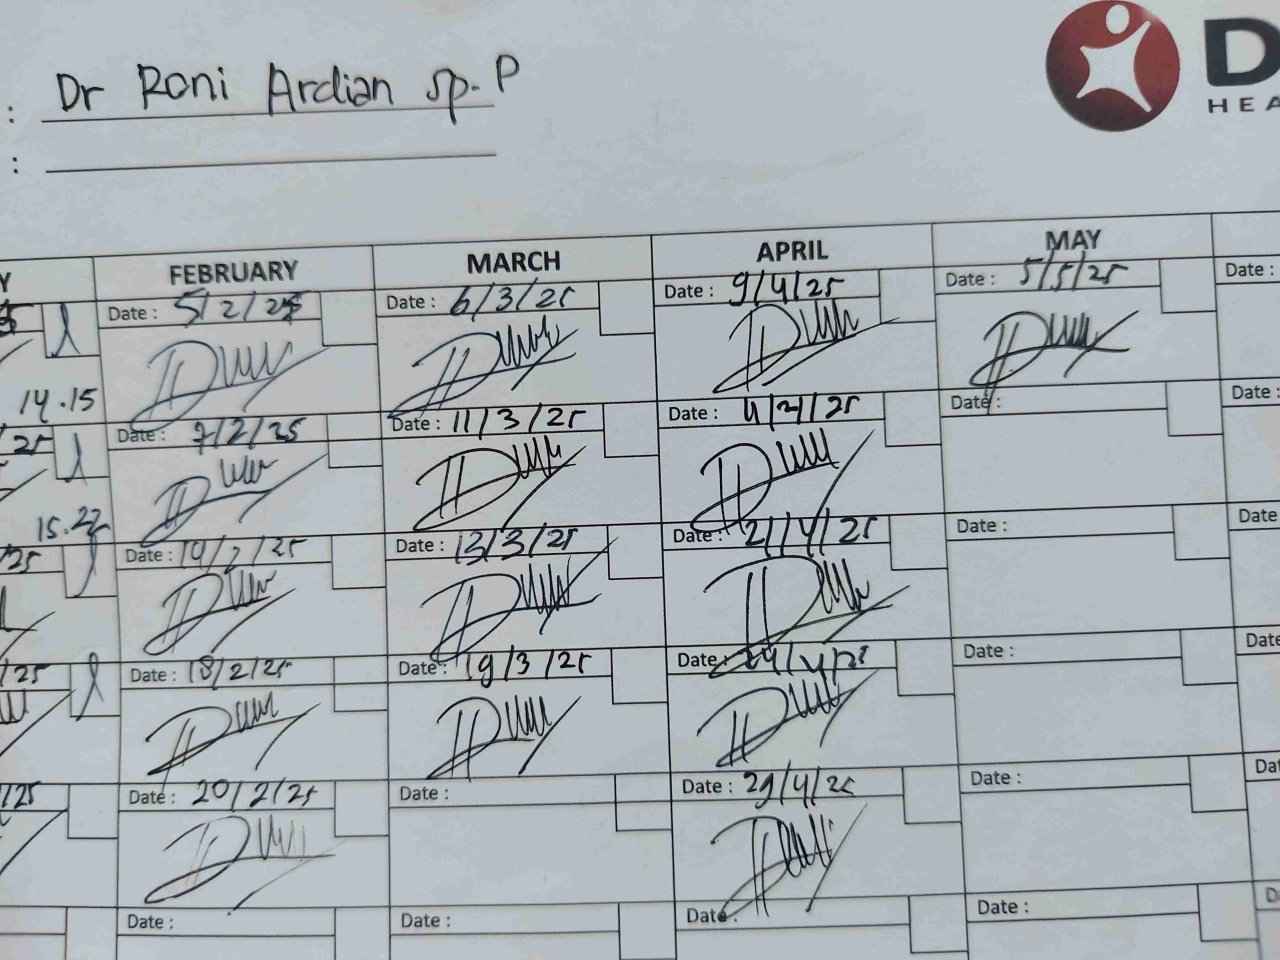 : Dr Roni Ardian sp. P
D
HEA
:
Y FEBRUARY MARCH APRIL MAY
Date : 5/2/25 Date : 6/3/25 Date : 9/4/25 Date : 5/5/25 Date :
14.15
/25 Date : 7/2/25 Date : 11/3/25 Date : Date : Date :
15.22
/25 Date : 14/2/25 Date : 13/3/25 Date : 21/4/25 Date : Date
/25 Date : 18/2/25 Date : 19/3/25 Date : 24/4/25 Date : Date
/25 Date : 20/2/25 Date : Date : 29/4/25 Date : Dat
Date : Date : Date : Date : D